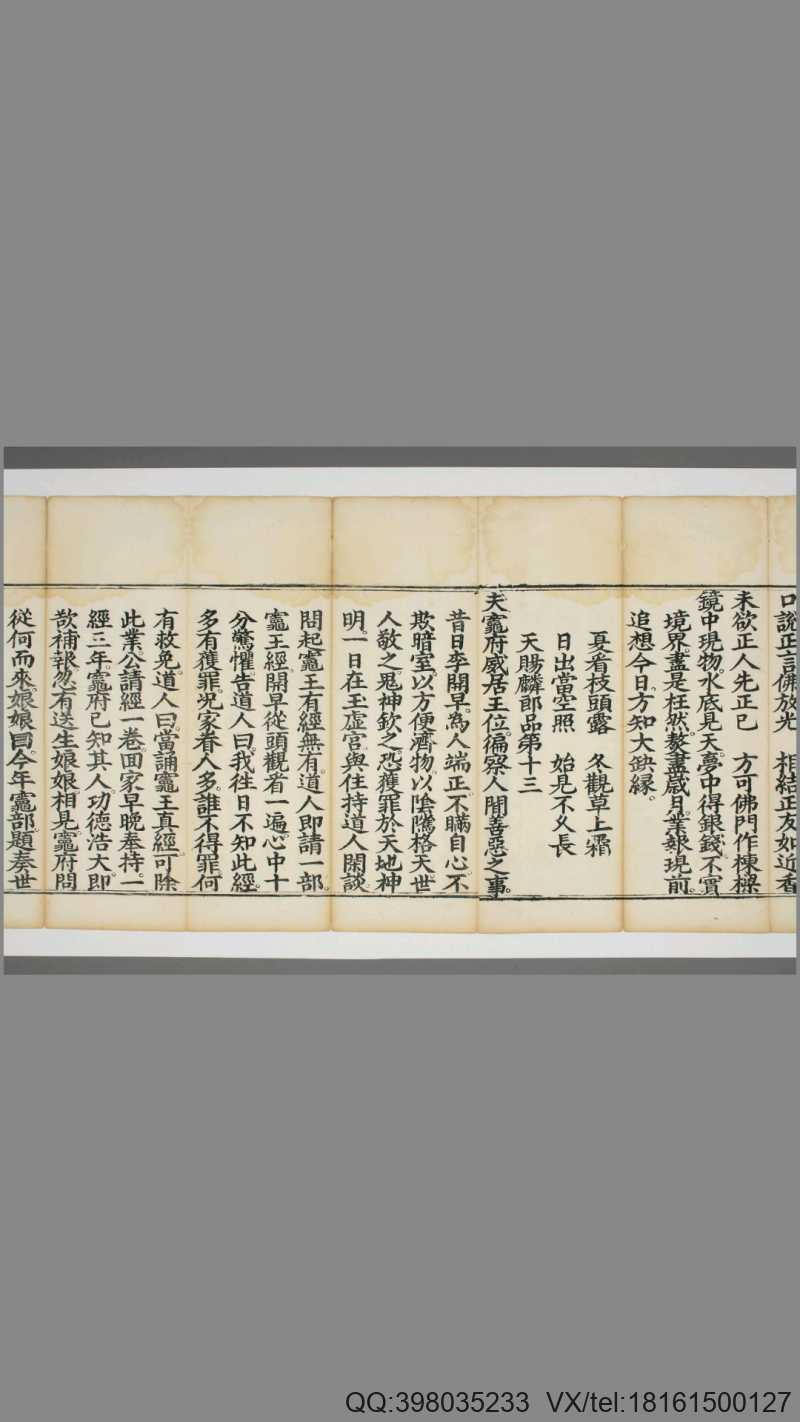 口說正言佛放光 相結正友如近香
未欲正人先正已 方可佛門作棟樑
鏡中現物水底見天夢中得銀錢不實
境界盡是枉然熬盡歲月業報現前
追想今日方知大缺緣
夏看枝頭露 冬觀草上霜
日出當空照 始是不久長
天賜麟郎品第十三
夫竈府威居王位徧察人間善惡之事
昔日李開早為人端正不瞞自心不
欺暗室以方便濟物以陰騭格天世
人敬之鬼神欽之恐獲罪於天地神
明一日在玉虛宮與住持道人閑談
問起竈王有經無有道人即請一部
竈王經開早從頭觀看一遍心中十
分驚懼告道人曰我徃日不知此經
多有獲罪况家眷人多誰不得罪何
有救免道人曰當誦竈王真經可除
此業公請經一卷回家早晚奉持一
經三年竈府已知其人功德浩大即
欲補報忽有送生娘娘相見竈府問
從何而來娘娘曰今年竈部題奏世
QQ:398035233 VX/tel:18161500127